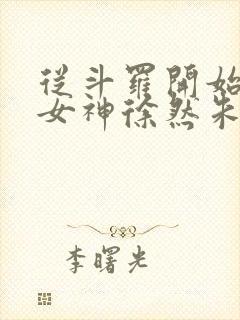 從斗羅開始
女神徐然朱
李曙光